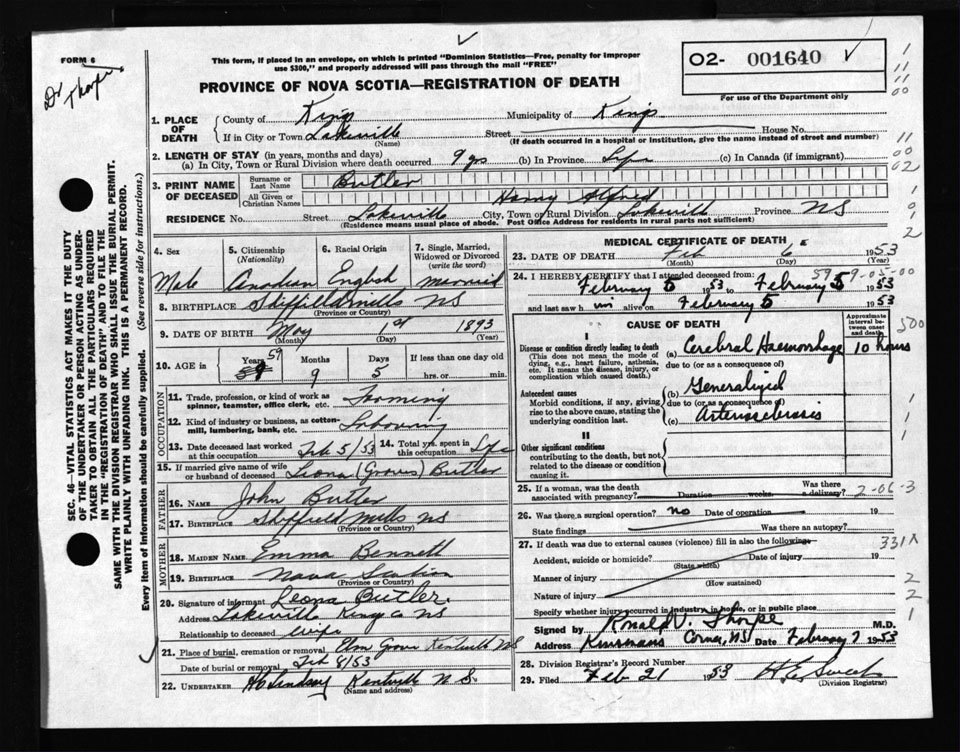 FORM 6
Dr Thorpe
This form, if placed in an envelope, on which is printed "Dominion Statistics—Free, penalty for improper
use $300," and properly addressed will pass through the mail "FREE"
O2- 001640
For use of the Department only
PROVINCE OF NOVA SCOTIA—REGISTRATION OF DEATH
1. PLACE OF DEATH
County of Kings Municipality of Kings
If in City or Town Lakeville Street House No.
(Name) (If death occurred in a hospital or institution, give the name instead of street and number)
2. LENGTH OF STAY (in years, months and days)
(a) In City, Town or Rural Division where death occurred 9 yrs (b) In Province Life (c) In Canada (if immigrant)
3. PRINT NAME OF DECEASED
Surname or Last Name Butler
All Given or Christian Names Harry Alfred
RESIDENCE No. Street Lakeville City, Town or Rural Division Lakeville Province NS
(Residence means usual place of abode. Post Office Address for residents in rural parts not sufficient)
4. Sex 5. Citizenship (Nationality) 6. Racial Origin 7. Single, Married, Widowed or Divorced (write the word)
Male Canadian English married
8. BIRTHPLACE Sheffield Mills NS
(Province or Country)
9. DATE OF BIRTH May 1st 1893
(Month) (Day) (Year)
10. AGE in Years 59 Months 9 Days 5 If less than one day old hrs. or min.
OCCUPATION
11. Trade, profession, or kind of work as spinner, teamster, office clerk, etc. Farming
12. Kind of industry or business, as cotton-mill, lumbering, bank, etc. Labouring
13. Date deceased last worked at this occupation Feb 5/53 14. Total yrs. spent in this occupation Life
15. If married give name of wife or husband of deceased Leona (Graves) Butler
FATHER
16. NAME John Butler
17. BIRTHPLACE Sheffield Mills NS
(Province or Country)
MOTHER
18. MAIDEN NAME Emma Bennett
19. BIRTHPLACE Nova Scotia
(Province or Country)
20. Signature of informant Leona Butler.
Address Lakeville Kings Co NS
Relationship to deceased wife
21. Place of burial, cremation or removal Elm Grove Kentville NS
Date of burial or removal Feb 8/53
22. UNDERTAKER H O Lindsay Kentville N S
(Name and address)
MEDICAL CERTIFICATE OF DEATH
23. DATE OF DEATH Feb 6 1953
(Month) (Day) (Year)
24. I HEREBY CERTIFY that I attended deceased from:
February 5 1953 to February 5 1953
and last saw him alive on February 5 1953
CAUSE OF DEATH
Approximate interval between onset and death
I
Disease or condition directly leading to death
(This does not mean the mode of dying, e.g., heart failure, asthenia, etc. It means the disease, injury, or complication which caused death.)
(a) Cerebral Haemorrhage 10 hours
due to (or as a consequence of)
Antecedent causes
Morbid conditions, if any, giving rise to the above cause, stating the underlying condition last.
(b) Generalized
due to (or as a consequence of)
(c) Arteriosclerosis
II
Other significant conditions
contributing to the death, but not related to the disease or condition causing it.
25. If a woman, was the death associated with pregnancy? Duration weeks. Was there a delivery?
2-06-3
26. Was there a surgical operation? no Date of operation 19
State findings Was there an autopsy?
27. If death was due to external causes (violence) fill in also the following:
331X
Accident, suicide or homicide? Date of injury 19
(State which)
Manner of injury
(How sustained)
Nature of injury
Specify whether injury occurred in industry, in home, or in public place
Signed by Ronald V. Thorpe M.D.
Address Kinsmans Corner, NS Date February 7 1953
28. Division Registrar's Record Number
29. Filed Feb 21 1953
(Division Registrar)
SEC. 46—VITAL STATISTICS ACT MAKES IT THE DUTY
OF THE UNDERTAKER OR PERSON ACTING AS UNDER-
TAKER TO OBTAIN ALL THE PARTICULARS REQUIRED
IN THE "REGISTRATION OF DEATH" AND TO FILE THE
SAME WITH THE DIVISION REGISTRAR WHO SHALL ISSUE THE BURIAL PERMIT.
WRITE PLAINLY WITH UNFADING INK. THIS IS A PERMANENT RECORD.
Every item of information should be carefully supplied. (See reverse side for instructions.)